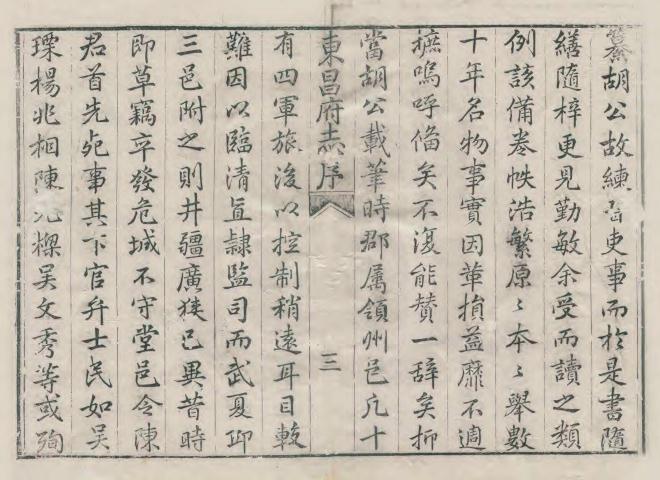 齋胡公故練習吏事而於是書隨
繕隨梓更見勤敏余受而讀之類
例該備卷帙浩繁原〻本〻舉數
十年名物事實因革損益靡不週
摭嗚呼備矣不復能贊一辭矣抑
當胡公載筆時郡属領州邑凡十
東昌府志序
三
有四軍旅後以控制稍遠耳目較
難因以臨清直隷監司而武夏邱
三邑附之則井疆廣狹已異昔時
即草竊卒發危城不守堂邑令陳
君首先死事其下官弁士民如吴
瑮楊兆相陳元樑吴文秀等或殉